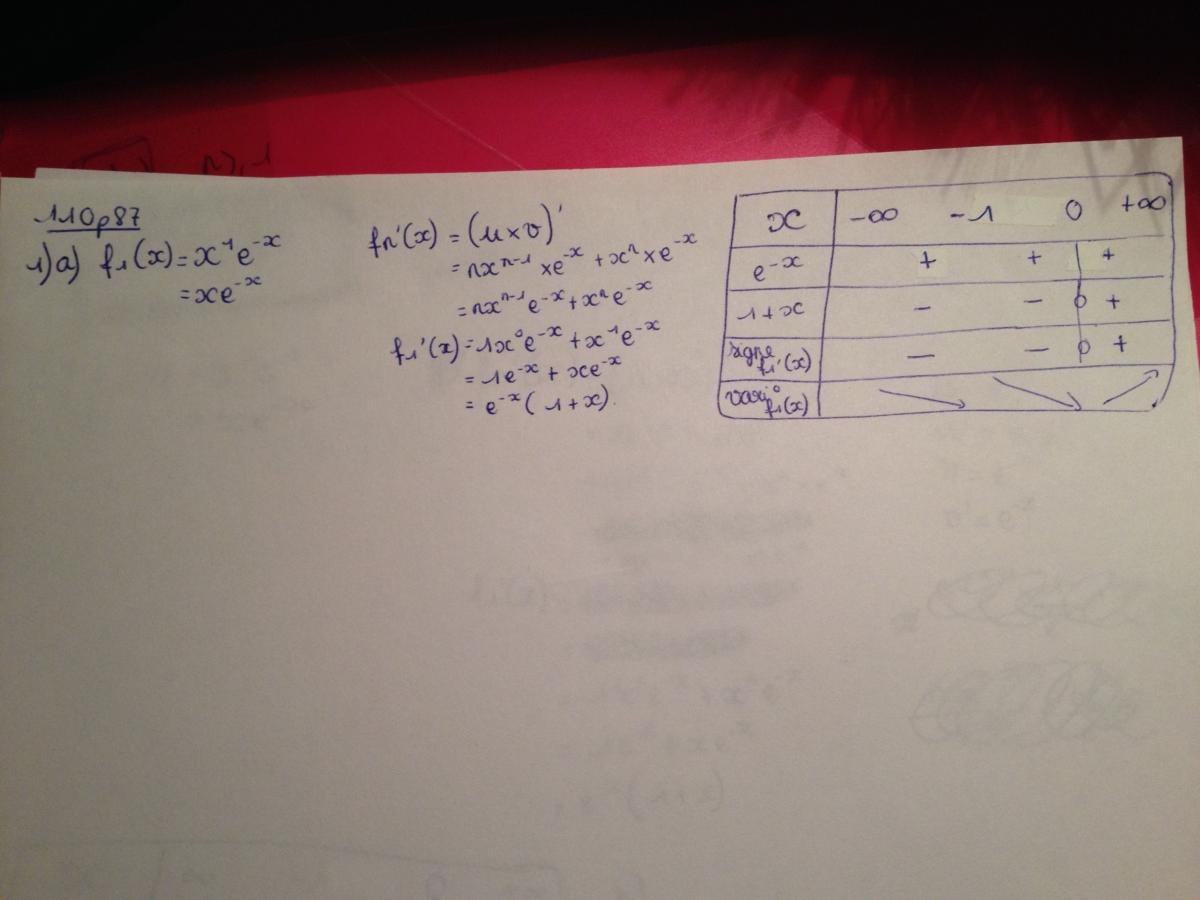 110p87
1)a) f₁(x) = x¹e⁻ˣ
= xe⁻ˣ
fn'(x) = (u×v)'
= nxⁿ⁻¹ × e⁻ˣ + xⁿ × e⁻ˣ
= nxⁿ⁻¹e⁻ˣ + xⁿe⁻ˣ
f₁'(x) = 1x⁰e⁻ˣ + x¹e⁻ˣ
= 1e⁻ˣ + xe⁻ˣ
= e⁻ˣ(1+x).
x -∞ -1 0 +∞
e⁻ˣ + + +
1+x - - 0 +
signe f₁'(x) - - 0 +
vari° f₁(x)
n⩾1